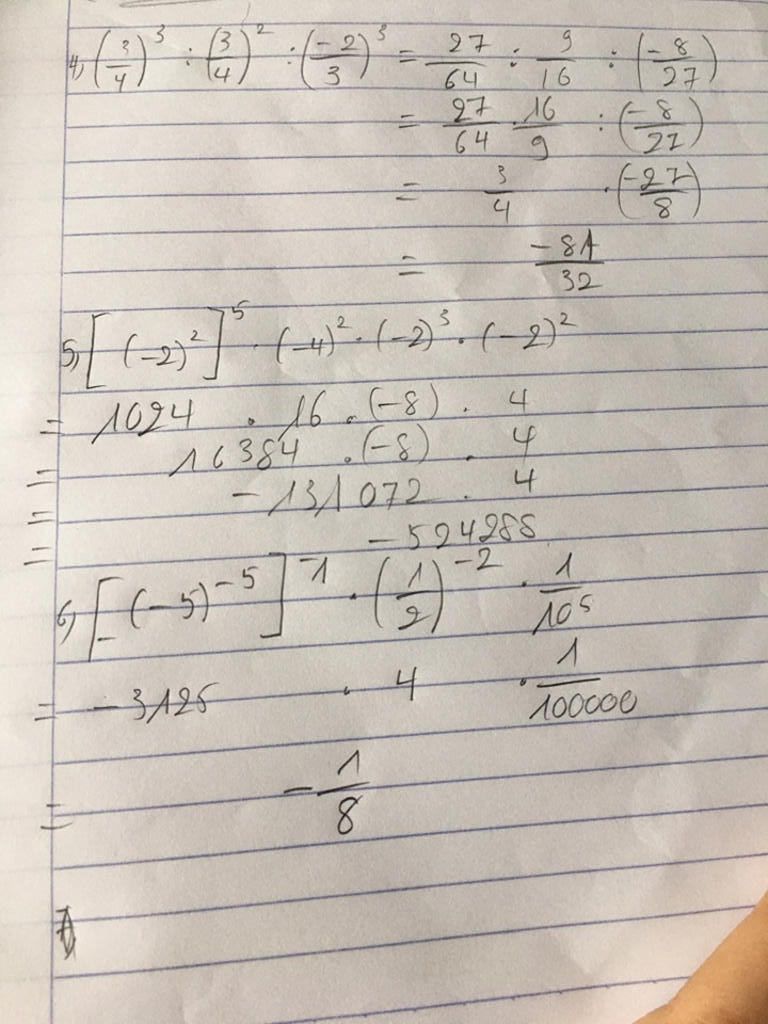 4, (3/4)^3 : (3/4)^2 : (-2/3)^3 = 27/64 : 9/16 : (-8/27)
= 27/64 . 16/9 : (-8/27)
= 3/4 . (-27/8)
= -81/32
5, [(-2)^2]^5 . (-4)^2 . (-2)^3 . (-2)^2
= 1024 . 16 . (-8) . 4
= 16384 . (-8) . 4
= -131072 . 4
= -524288
6, [-(-5)^-5]^-1 . (1/2)^-2 . 1/10^5
= -3125 . 4 . 1/100000
= -1/8